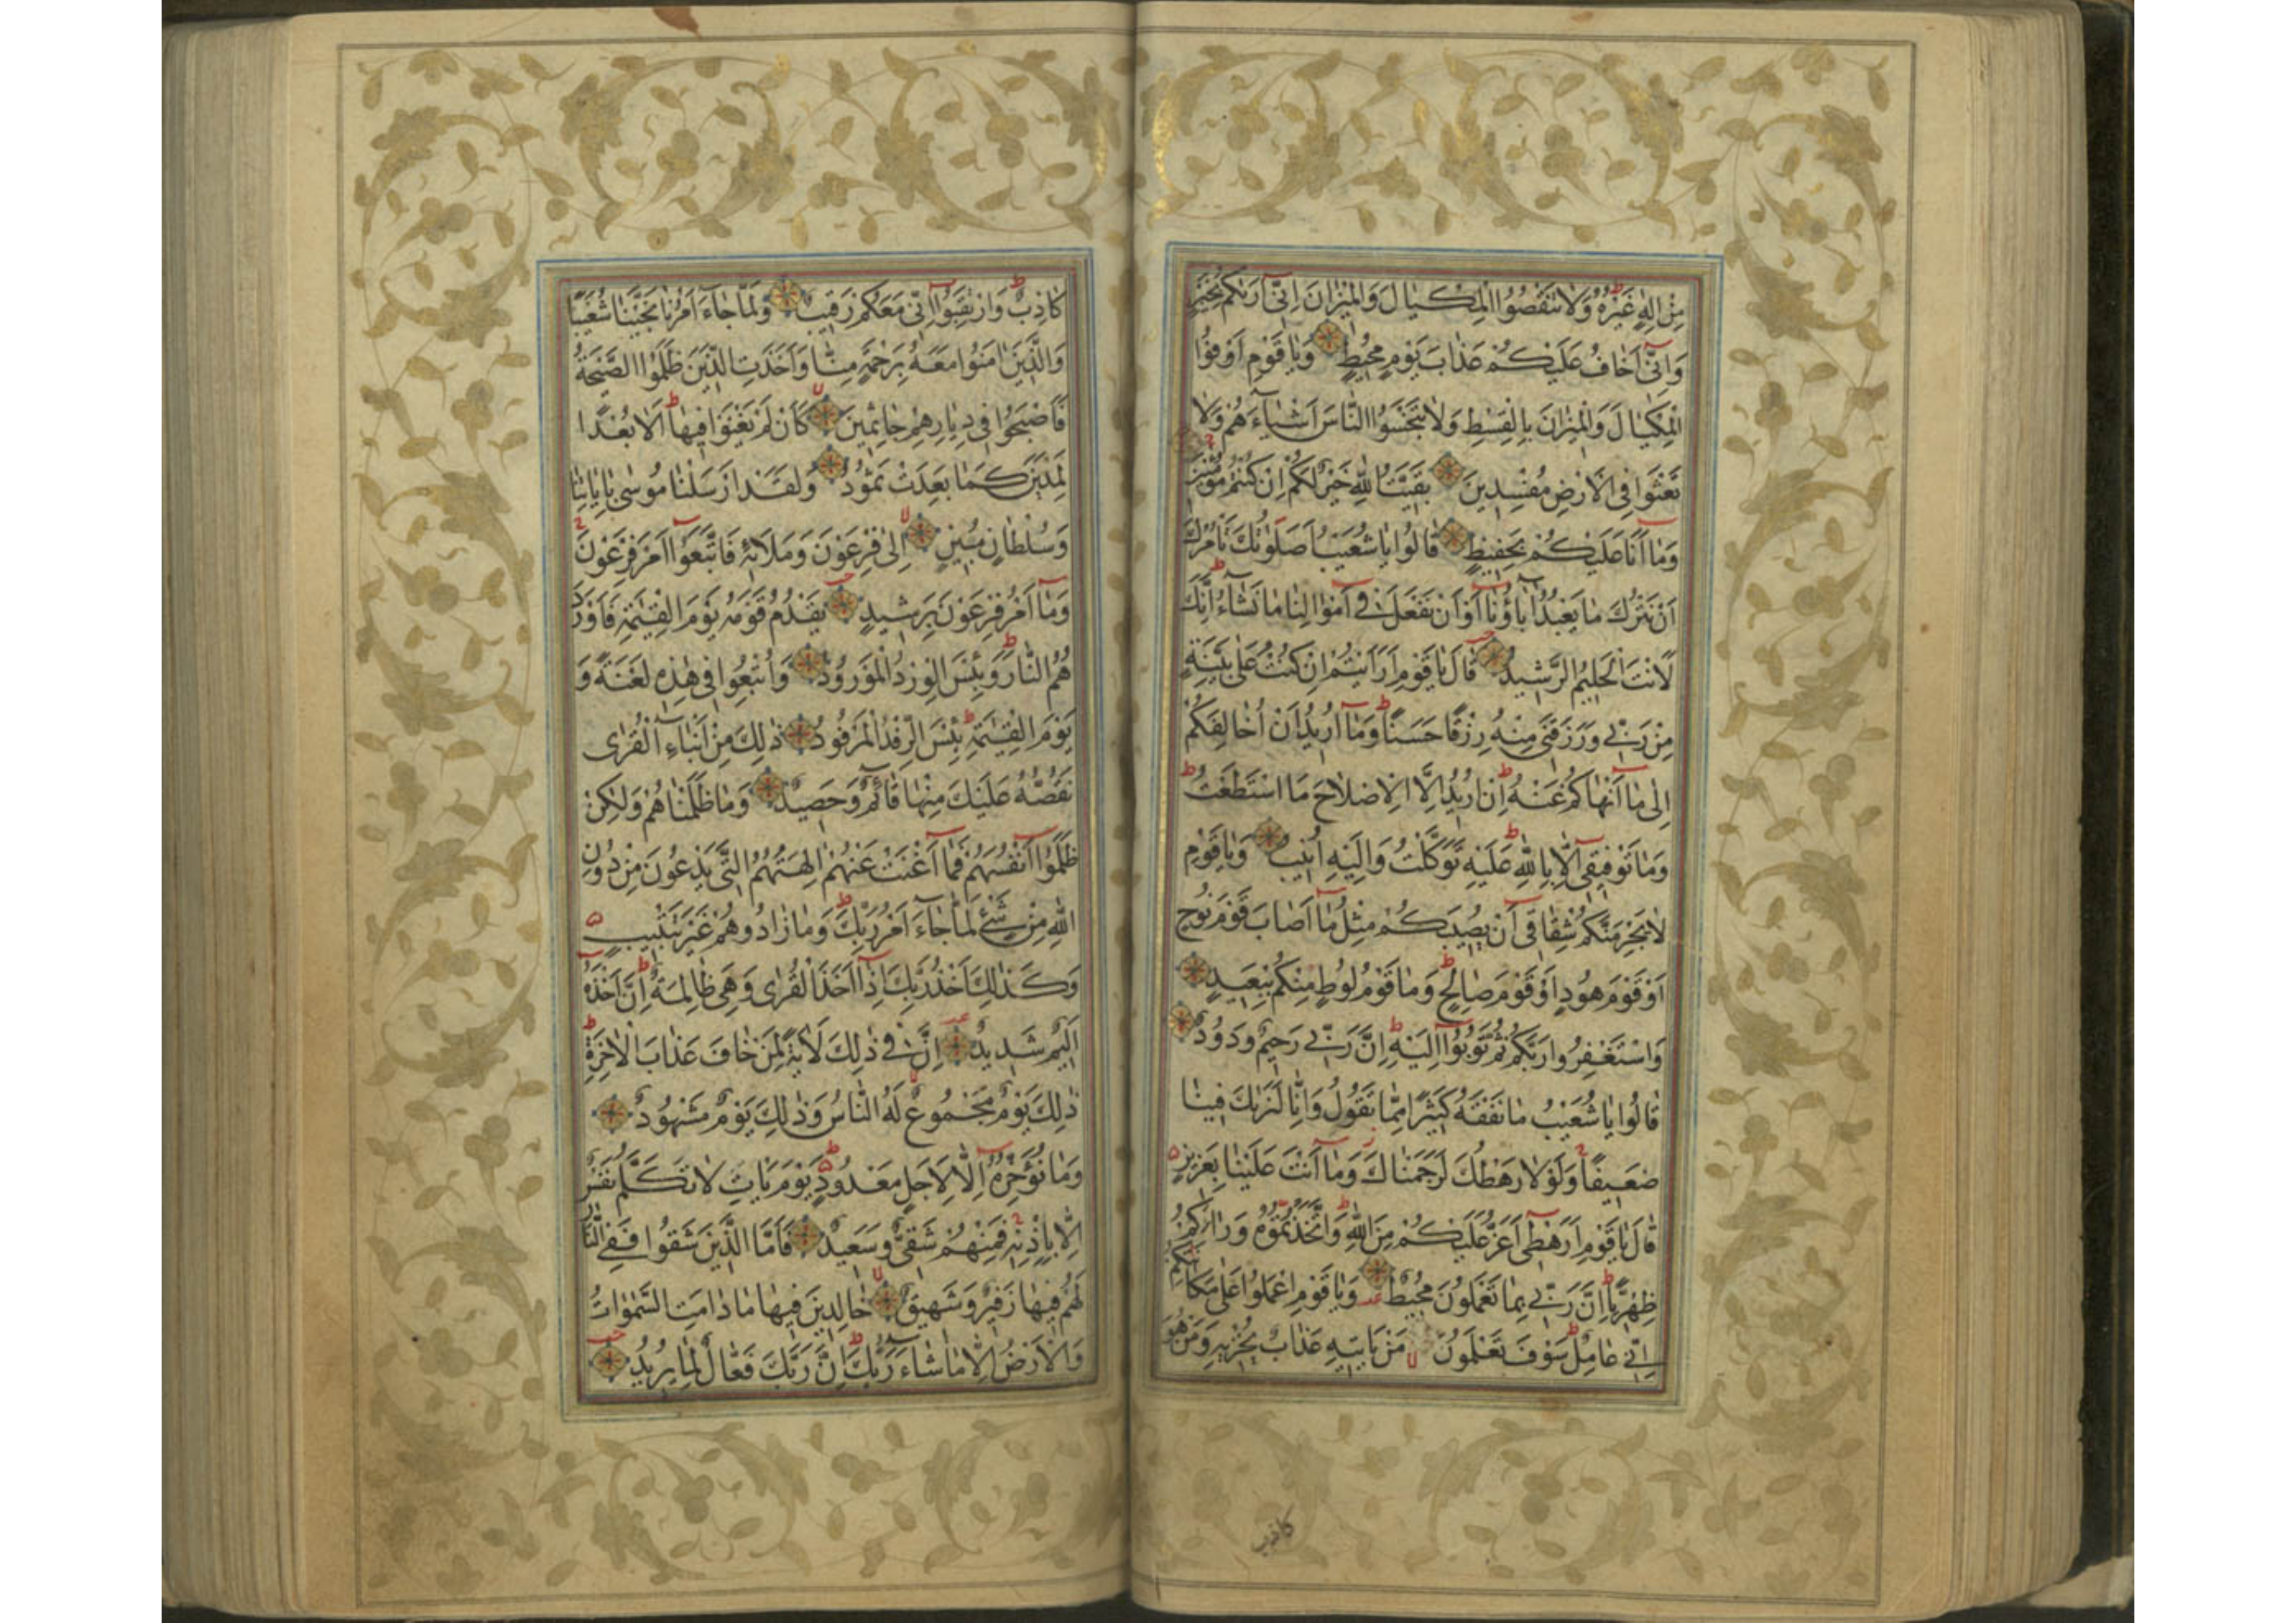 مِنْ اِلٰهٍ غَيْرُهُ وَلَا تَنْقُصُوا الْمِكْيَالَ وَالْمِيزَانَ اِنّٓي اَرٰيكُمْ بِخَيْرٍ
وَاِنّٓي اَخَافُ عَلَيْكُمْ عَذَابَ يَوْمٍ مُحِيطٍ وَيَا قَوْمِ اَوْفُوا
الْمِكْيَالَ وَالْمِيزَانَ بِالْقِسْطِ وَلَا تَبْخَسُوا النَّاسَ اَشْيَآءَهُمْ وَلَا
تَعْثَوْا فِي الْاَرْضِ مُفْسِدِينَ بَقِيَّتُ اللّٰهِ خَيْرٌ لَكُمْ اِنْ كُنْتُمْ مُؤْمِنِينَ
وَمَآ اَنَا عَلَيْكُمْ بِحَفِيظٍ قَالُوا يَا شُعَيْبُ اَصَلَوٰتُكَ تَأْمُرُكَ
اَنْ نَتْرُكَ مَا يَعْبُدُ اٰبَآؤُنَآ اَوْ اَنْ نَفْعَلَ فِٓي اَمْوَالِنَا مَا نَشَآءُ اِنَّكَ
لَاَنْتَ الْحَلِيمُ الرَّشِيدُ قَالَ يَا قَوْمِ اَرَاَيْتُمْ اِنْ كُنْتُ عَلٰى بَيِّنَةٍ
مِنْ رَبِّي وَرَزَقَنِي مِنْهُ رِزْقًا حَسَنًا وَمَآ اُرِيدُ اَنْ اُخَالِفَكُمْ
اِلٰى مَآ اَنْهَاكُمْ عَنْهُ اِنْ اُرِيدُ اِلَّا الْاِصْلَاحَ مَا اسْتَطَعْتُ
وَمَا تَوْفِيقِٓي اِلَّا بِاللّٰهِ عَلَيْهِ تَوَكَّلْتُ وَاِلَيْهِ اُنِيبُ وَيَا قَوْمِ
لَا يَجْرِمَنَّكُمْ شِقَاقِٓي اَنْ يُصِيبَكُمْ مِثْلُ مَآ اَصَابَ قَوْمَ نُوحٍ
اَوْ قَوْمَ هُودٍ اَوْ قَوْمَ صَالِحٍ وَمَا قَوْمُ لُوطٍ مِنْكُمْ بِبَعِيدٍ
وَاسْتَغْفِرُوا رَبَّكُمْ ثُمَّ تُوبُوٓا اِلَيْهِ اِنَّ رَبِّي رَحِيمٌ وَدُودٌ
قَالُوا يَا شُعَيْبُ مَا نَفْقَهُ كَثِيرًا مِمَّا تَقُولُ وَاِنَّا لَنَرٰيكَ فِينَا
ضَعِيفًا وَلَوْلَا رَهْطُكَ لَرَجَمْنَاكَ وَمَآ اَنْتَ عَلَيْنَا بِعَزِيزٍ
قَالَ يَا قَوْمِ اَرَهْطِٓي اَعَزُّ عَلَيْكُمْ مِنَ اللّٰهِ وَاتَّخَذْتُمُوهُ وَرَآءَكُمْ
ظِهْرِيًّا اِنَّ رَبِّي بِمَا تَعْمَلُونَ مُحِيطٌ وَيَا قَوْمِ اعْمَلُوا عَلٰى مَكَانَتِكُمْ
اِنِّي عَامِلٌ سَوْفَ تَعْلَمُونَ مَنْ يَأْتِيهِ عَذَابٌ يُخْزِيهِ وَمَنْ هُوَ
كاذب
كَاذِبٌ وَارْتَقِبُوٓا اِنِّي مَعَكُمْ رَقِيبٌ وَلَمَّا جَآءَ اَمْرُنَا نَجَّيْنَا شُعَيْبًا
وَالَّذِينَ اٰمَنُوا مَعَهُ بِرَحْمَةٍ مِنَّا وَاَخَذَتِ الَّذِينَ ظَلَمُوا الصَّيْحَةُ
فَاَصْبَحُوا فِي دِيَارِهِمْ جَاثِمِينَ كَاَنْ لَمْ يَغْنَوْا فِيهَا اَلَا بُعْدًا
لِمَدْيَنَ كَمَا بَعِدَتْ ثَمُودُ وَلَقَدْ اَرْسَلْنَا مُوسٰى بِاٰيَاتِنَا
وَسُلْطَانٍ مُبِينٍ اِلٰى فِرْعَوْنَ وَمَلَائِهِ فَاتَّبَعُوٓا اَمْرَ فِرْعَوْنَ
وَمَآ اَمْرُ فِرْعَوْنَ بِرَشِيدٍ يَقْدُمُ قَوْمَهُ يَوْمَ الْقِيٰمَةِ فَاَوْرَدَ
هُمُ النَّارَ وَبِئْسَ الْوِرْدُ الْمَوْرُودُ وَاُتْبِعُوا فِي هٰذِهِ لَعْنَةً وَ
يَوْمَ الْقِيٰمَةِ بِئْسَ الرِّفْدُ الْمَرْفُودُ ذٰلِكَ مِنْ اَنْبَآءِ الْقُرٰى
نَقُصُّهُ عَلَيْكَ مِنْهَا قَآئِمٌ وَحَصِيدٌ وَمَا ظَلَمْنَاهُمْ وَلٰكِنْ
ظَلَمُوٓا اَنْفُسَهُمْ فَمَآ اَغْنَتْ عَنْهُمْ اٰلِهَتُهُمُ الَّتِي يَدْعُونَ مِنْ دُونِ
اللّٰهِ مِنْ شَيْءٍ لَمَّا جَآءَ اَمْرُ رَبِّكَ وَمَا زَادُوهُمْ غَيْرَ تَتْبِيبٍ
وَكَذٰلِكَ اَخْذُ رَبِّكَ اِذَآ اَخَذَ الْقُرٰى وَهِيَ ظَالِمَةٌ اِنَّ اَخْذَهُ
اَلِيمٌ شَدِيدٌ اِنَّ فِي ذٰلِكَ لَاٰيَةً لِمَنْ خَافَ عَذَابَ الْاٰخِرَةِ
ذٰلِكَ يَوْمٌ مَجْمُوعٌ لَهُ النَّاسُ وَذٰلِكَ يَوْمٌ مَشْهُودٌ
وَمَا نُؤَخِّرُهُٓ اِلَّا لِاَجَلٍ مَعْدُودٍ يَوْمَ يَأْتِ لَا تَكَلَّمُ نَفْسٌ
اِلَّا بِاِذْنِهِ فَمِنْهُمْ شَقِيٌّ وَسَعِيدٌ فَاَمَّا الَّذِينَ شَقُوا فَفِي النَّارِ
لَهُمْ فِيهَا زَفِيرٌ وَشَهِيقٌ خَالِدِينَ فِيهَا مَا دَامَتِ السَّمٰوَاتُ
وَالْاَرْضُ اِلَّا مَا شَآءَ رَبُّكَ اِنَّ رَبَّكَ فَعَّالٌ لِمَا يُرِيدُ